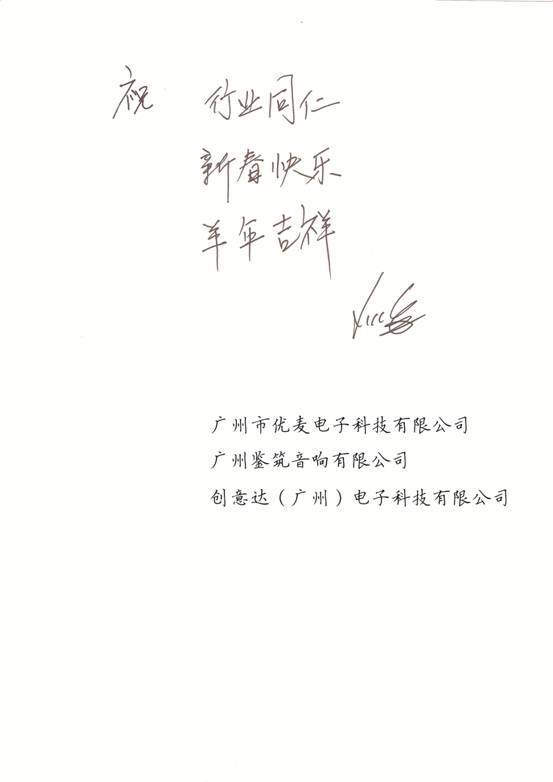 祝 行业同仁
新春快乐
羊年吉祥
广州市优麦电子科技有限公司
广州鉴筑音响有限公司
创意达（广州）电子科技有限公司